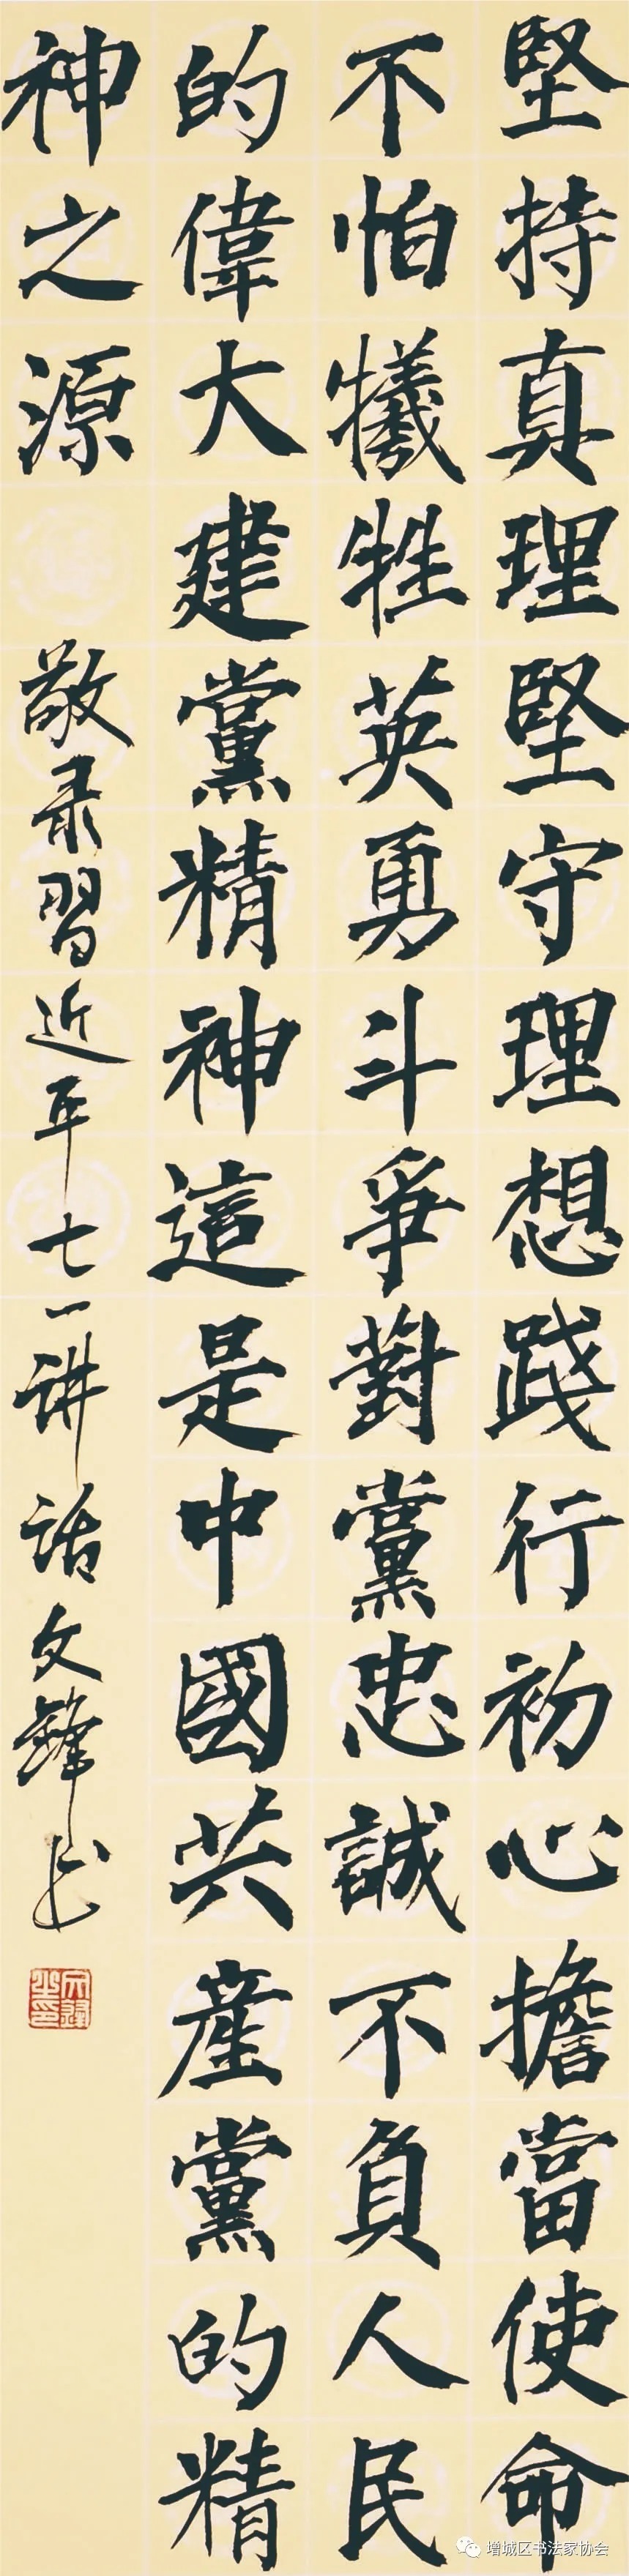 堅持真理堅守理想踐行初心擔當使命
不怕犧牲英勇斗爭對黨忠誠不負人民
的偉大建黨精神這是中國共產黨的精
神之源
敬录習近平七一讲话文鋒书
增城区书法家协会